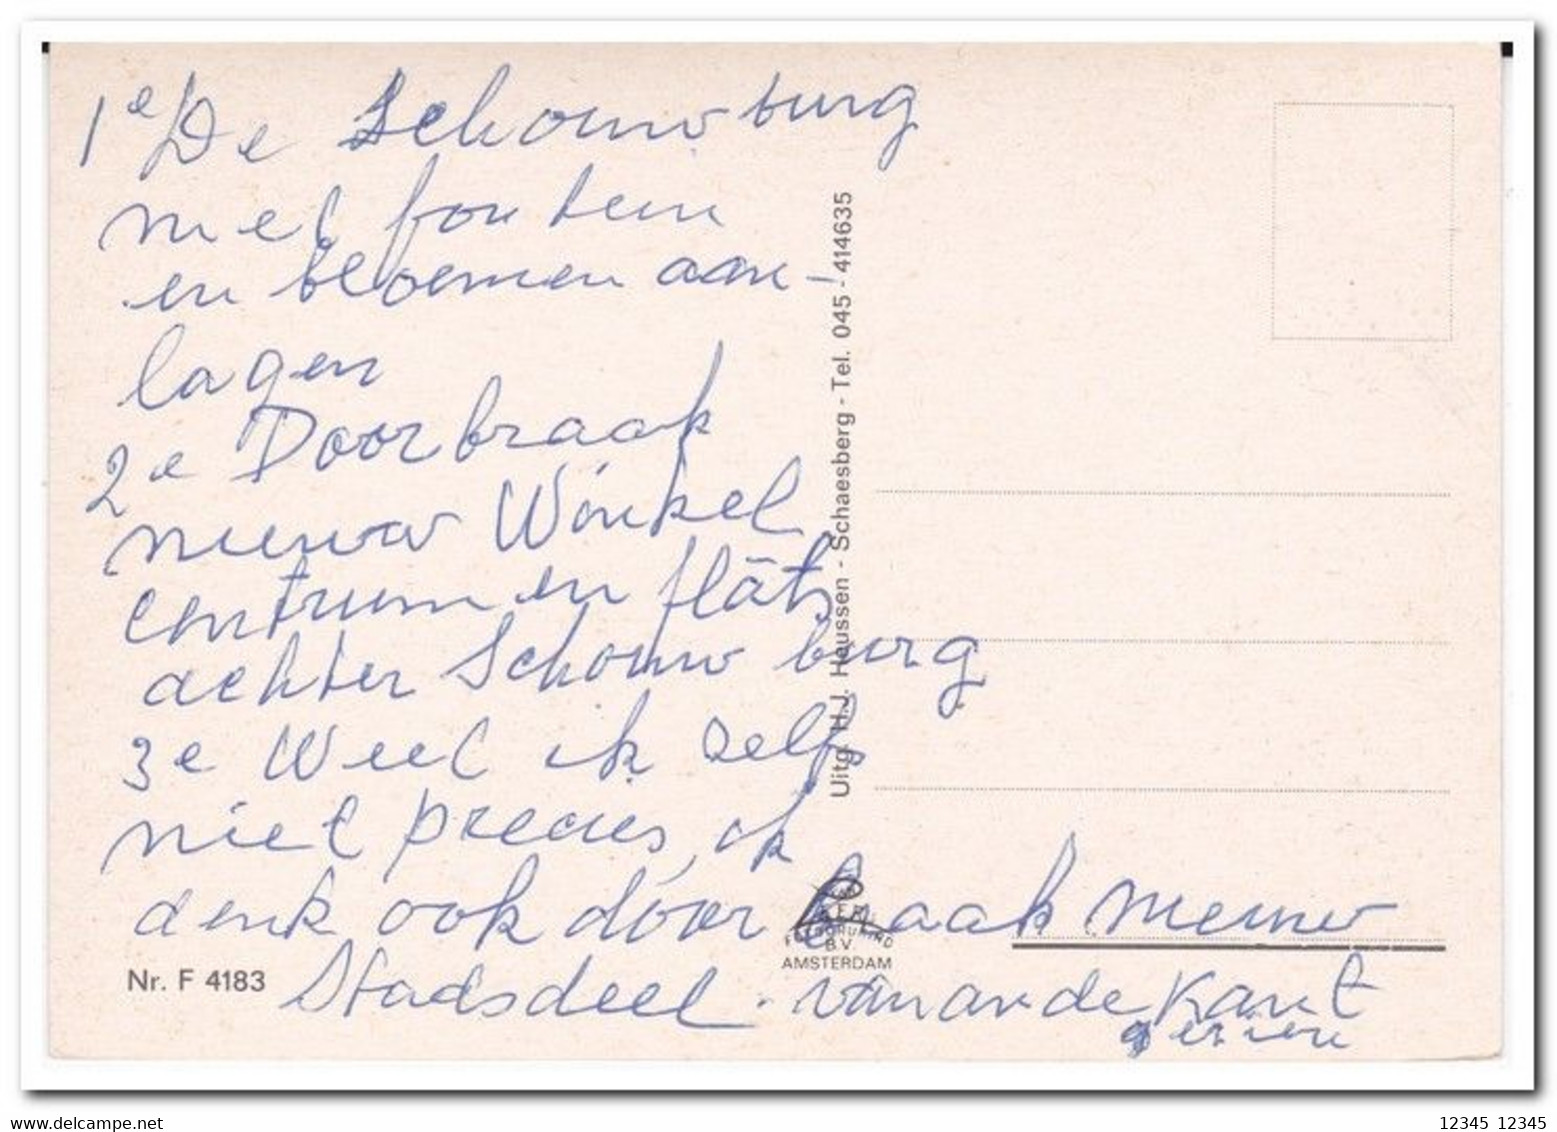 1e De Schouwburg
met fontein
en bloemen aan-
lagen
2e Doorbraak
nieuw Winkel
centrum en flats
achter Schouwburg
3e Weet ik zelfs
niet precies, ik
denk ook doorbraak nieuw
Stadsdeel. van ande kant
gezien
Nr. F 4183
Uitg. H.J. Heussen - Schaesberg - Tel. 045 - 414635
B.V.
AMSTERDAM
www.delcampe.net
12345 12345